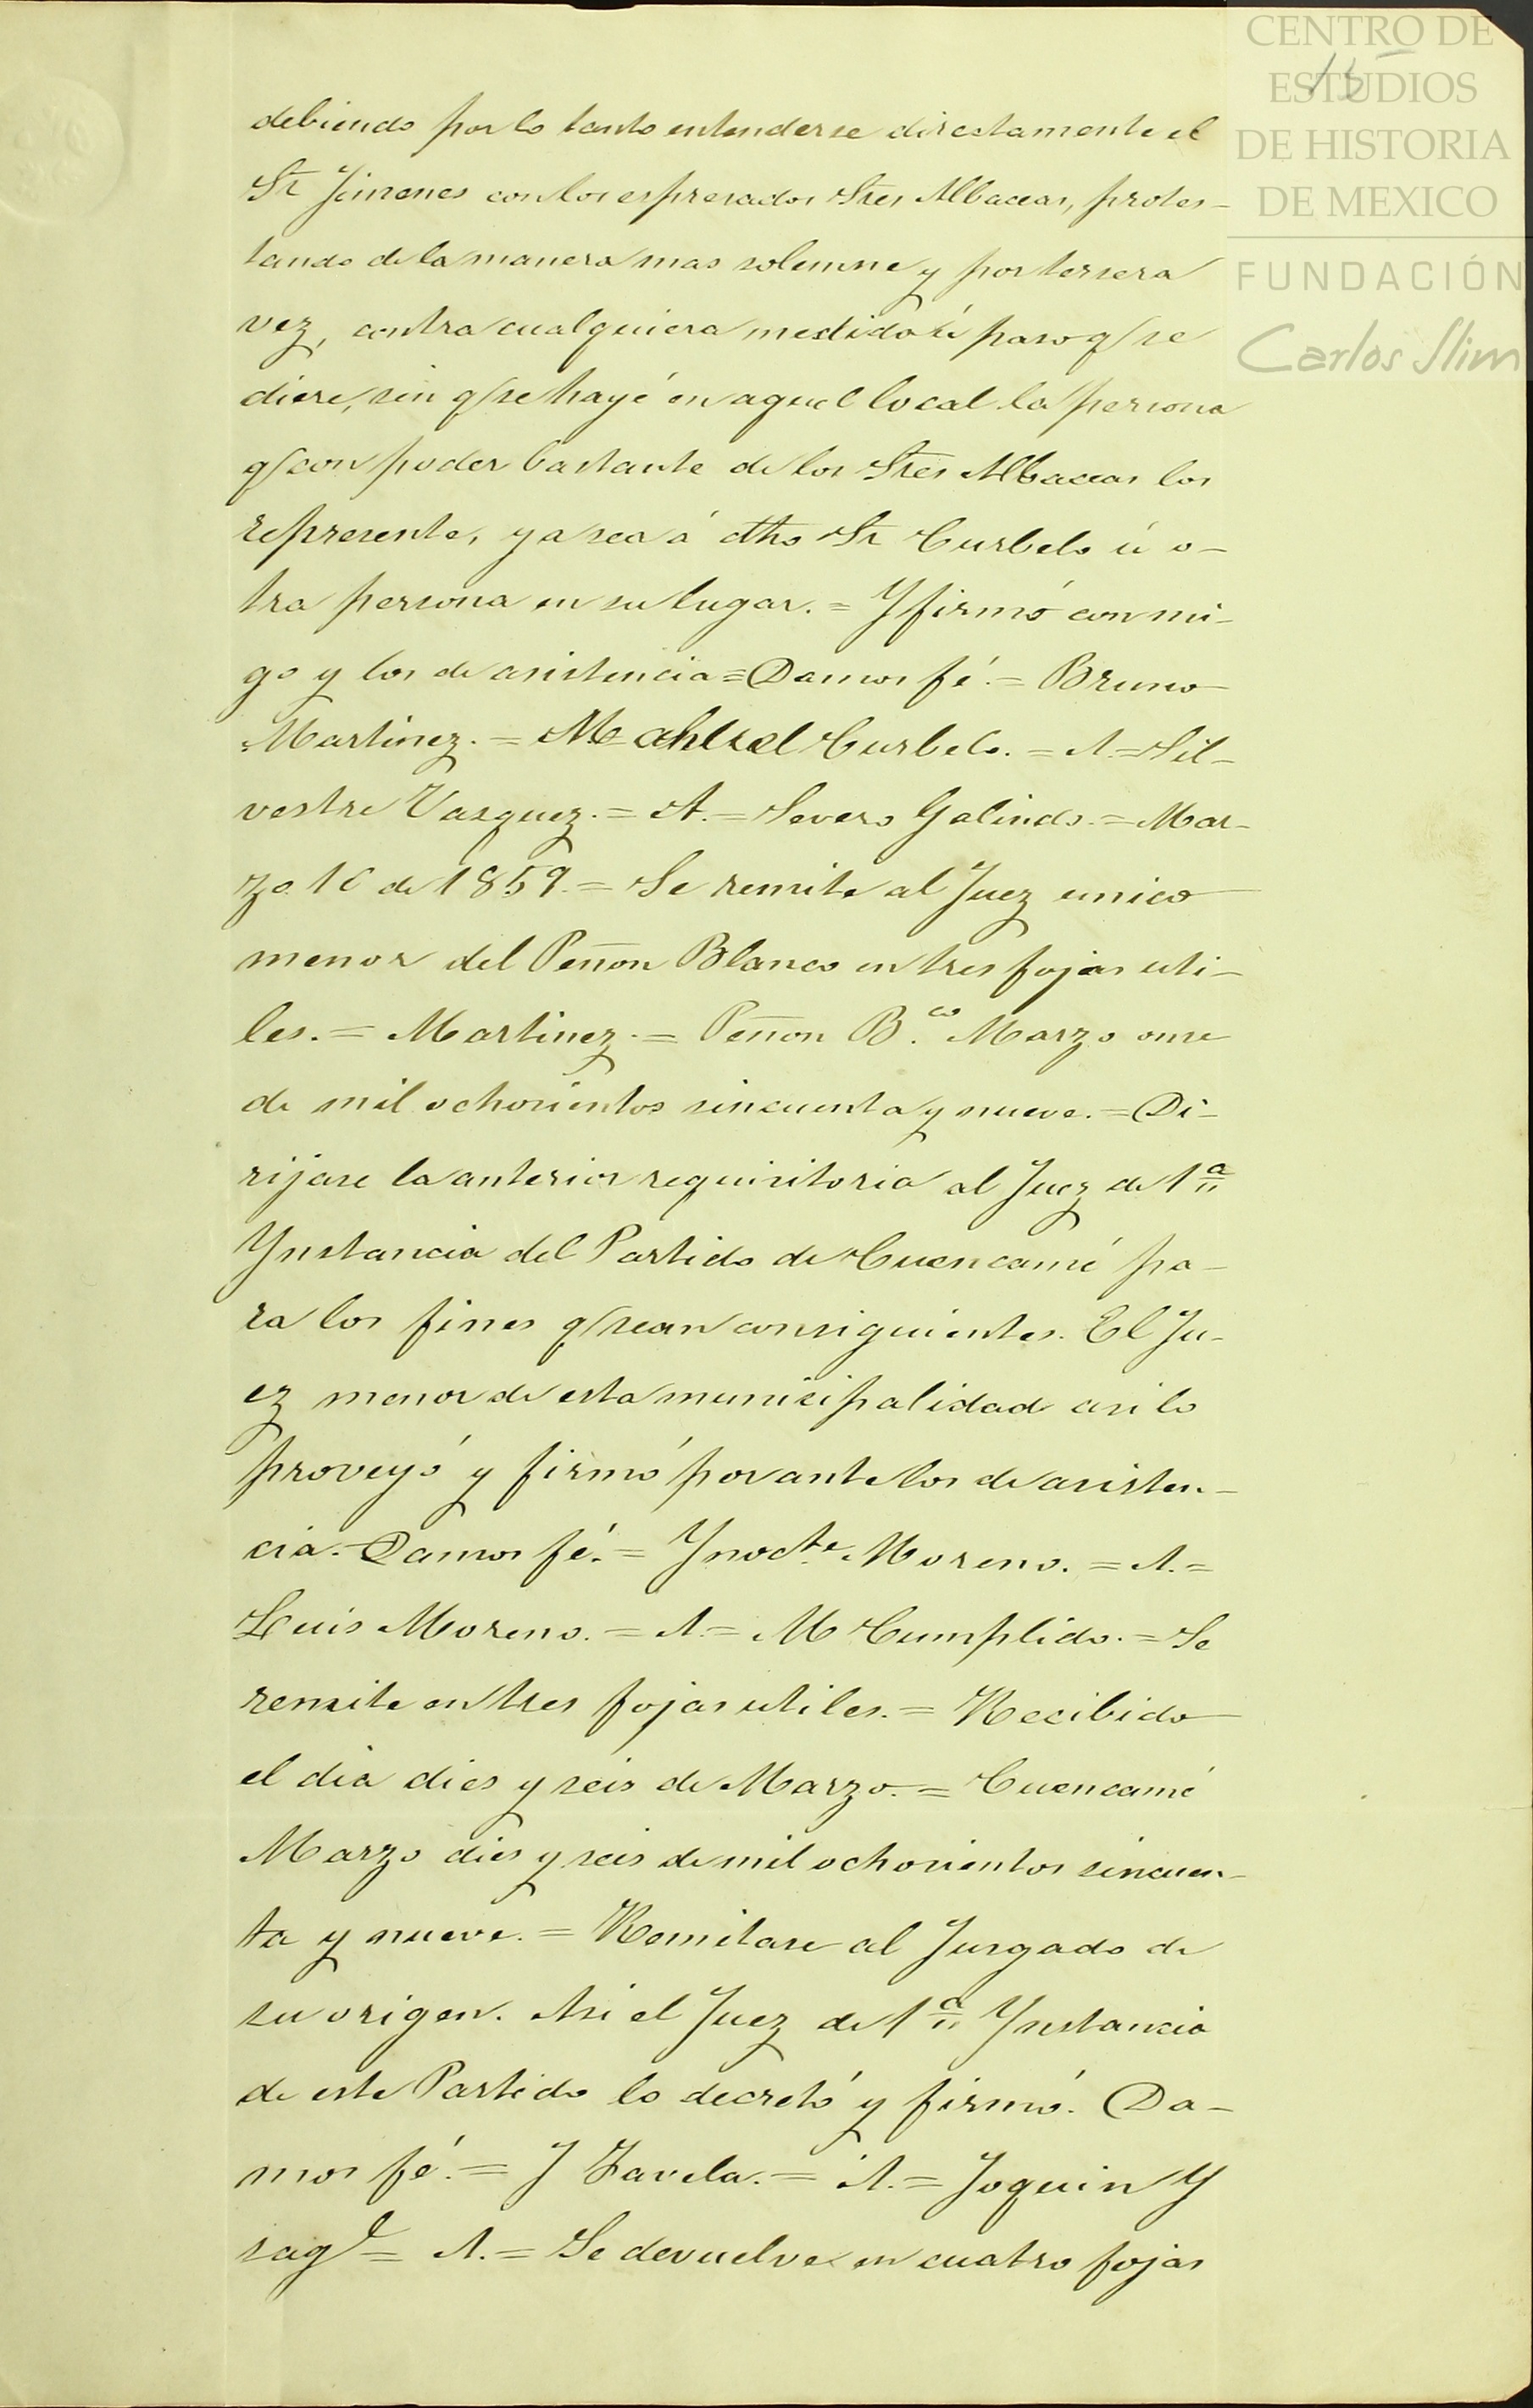 CENTRO DE
ESTUDIOS
DE HISTORIA
DE MEXICO
FUNDACIÓN
Carlos Slim
debiendo por lo tanto entenderse directamente el
Sr Jimenes con los espresados Sres Albaceas, protes-
tando de la manera mas solemne y por tersera
vez, contra cualquiera medida ú paso q/ se
diere, sin q/ se hayé en aquel local la persona
q/ con poder bastante de los Sres Albaceas los
represente, ya sea á dho Sr Curbelo ú o-
tra persona en su lugar. = Y firmó con mi-
go y los de asistencia = Damos fé. = Bruno
Martinez. = Curbelo. = A. = Sil-
vestre Vasquez. = A. = Severo Galindo. = Mar-
zo 10 de 1859. = Se remite al Juez unico
menor del Peñon Blanco en tres fojas uti-
les. = Martinez. = Peñon B.co Marzo onse
de mil ochosientos sincuenta y nueve. = Di-
rijase la anterior requisitoria al Juez de 1ª
Ynstancia del Partido de Cuencamé pa-
ra los fines q/ sean consiguientes. El Ju-
ez menor de esta munisipalidad asi lo
proveyó y firmó por ante los de asisten-
cia. Damos fé. = Ynocte. Moreno. = A. =
Luis Moreno. = A. = M Cumplido. = Se
remite en tres fojas utiles. = Recibido
el dia dies y seis de Marzo. = Cuencamé
Marzo dies y seis de mil ochosientos sincuen-
ta y nueve. = Remitase al Jusgado de
su origen. Asi el Juez de 1ª Ynstancia
de este Partido lo decretó y firmó. Da-
mos fé. = J Favela. = A. = Joquin Y
= A. = Se devuelve en cuatro fojas